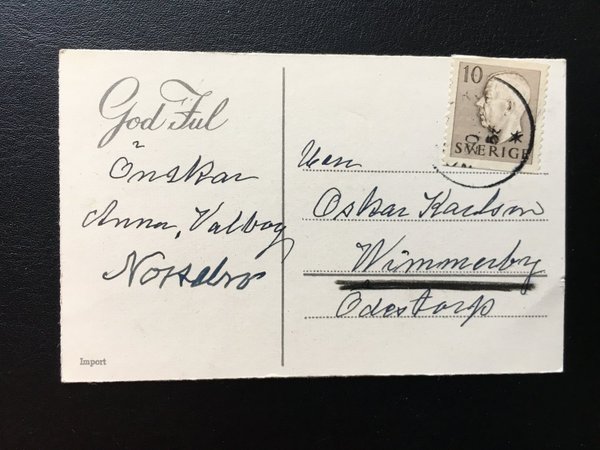 God Jul
Önskar
Anna, Valborg
Import
10
SVERIGE
Oskar Karlson
Wimmerby
Ödestorp